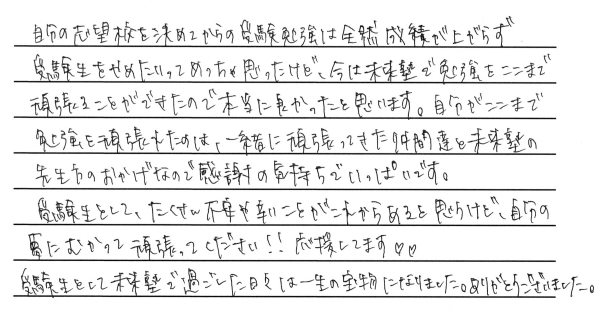 自分の志望校を決めてからの受験勉強は全然成績が上がらず
受験生をやめたいってめっちゃ思ったけど、今は未来塾で勉強をここまで
頑張ることができたので本当に良かったと思います。自分がここまで
勉強を頑張れたのは、一緒に頑張ってきた仲間達と未来塾の
先生方のおかげなので感謝の気持ちでいっぱいです。
受験生として、たくさん不安や辛いことがこれからあると思うけど、自分の
夢にむかって頑張ってください!! 応援してます♡♡
受験生として未来塾で過ごした日々は一生の宝物になりました。ありがとうございました。